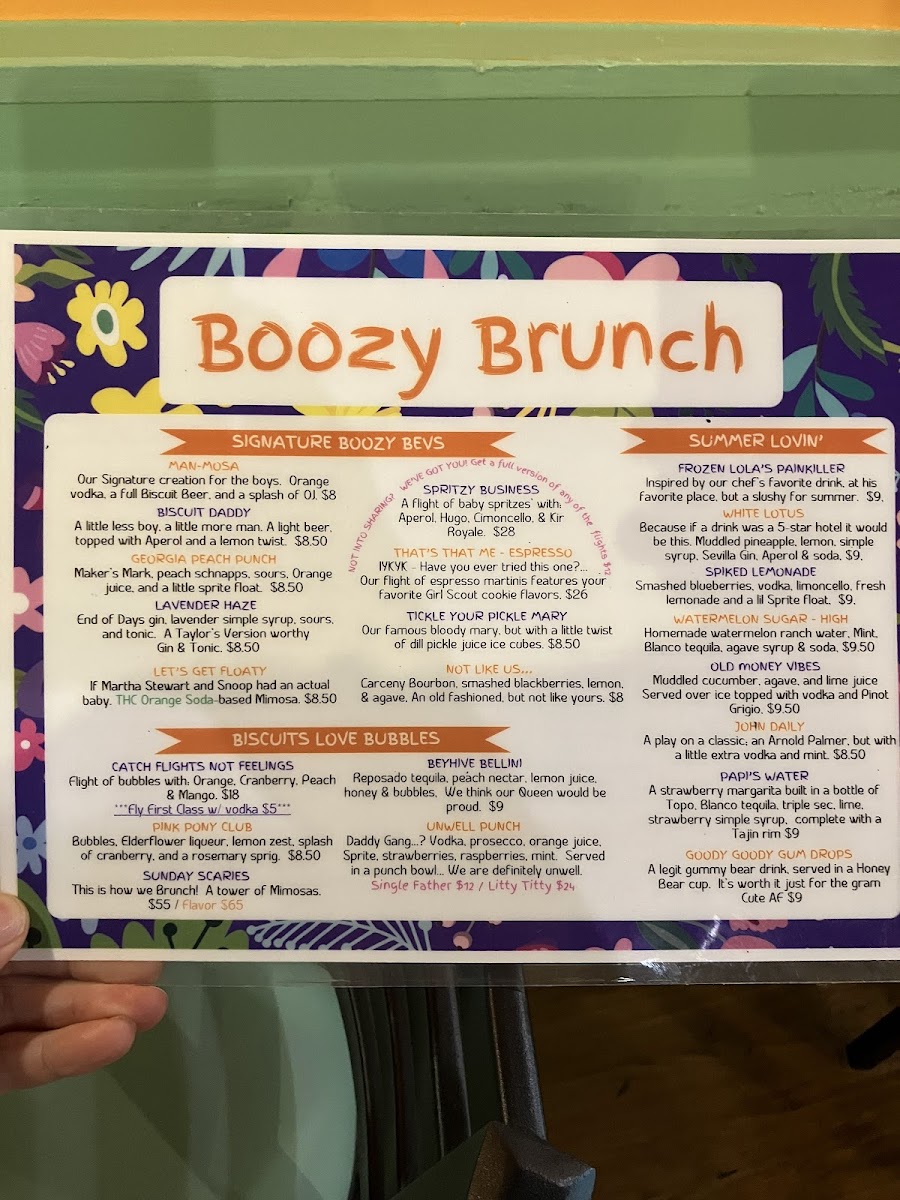 Boozy Brunch
SIGNATURE BOOZY BEVS
MAN-MOSA
Our Signature creation for the boys. Orange
vodka, a full Biscuit Beer, and a splash of OJ. $8
BISCUIT DADDY
A little less boy, a little more man. A light beer,
topped with Aperol and a lemon twist. $8.50
GEORGIA PEACH PUNCH
Maker's Mark, peach schnapps, sours, Orange
juice, and a little sprite float. $8.50
LAVENDER HAZE
End of Days gin, lavender simple syrup, sours,
and tonic. A Taylor's Version worthy
Gin & Tonic. $8.50
LET'S GET FLOATY
If Martha Stewart and Snoop had an actual
baby. THC Orange Soda-based Mimosa. $8.50
NOT INTO SHARING? WE'VE GOT YOU! Get a full version of any of the flights $12
SPRITZY BUSINESS
A flight of baby spritzes' with:
Aperol, Hugo, Cimoncello, & Kir
Royale. $28
THAT'S THAT ME - ESPRESSO
IYKYK - Have you ever tried this one?...
Our flight of espresso martinis features your
favorite Girl Scout cookie flavors. $26
TICKLE YOUR PICKLE MARY
Our famous bloody mary, but with a little twist
of dill pickle juice ice cubes. $8.50
NOT LIKE US...
Carceny Bourbon, smashed blackberries, lemon,
& agave. An old fashioned, but not like yours. $8
BISCUITS LOVE BUBBLES
CATCH FLIGHTS NOT FEELINGS
Flight of bubbles with: Orange, Cranberry, Peach
& Mango. $18
***Fly First Class w/ vodka $5***
PINK PONY CLUB
Bubbles, Elderflower liqueur, lemon zest, splash
of cranberry, and a rosemary sprig. $8.50
SUNDAY SCARIES
This is how we Brunch! A tower of Mimosas.
$55 / Flavor $65
BEYHIVE BELLINI
Reposado tequila, peach nectar, lemon juice,
honey & bubbles. We think our Queen would be
proud. $9
UNWELL PUNCH
Daddy Gang...? Vodka, prosecco, orange juice,
Sprite, strawberries, raspberries, mint. Served
in a punch bowl... We are definitely unwell.
Single Father $12 / Litty Titty $24
SUMMER LOVIN'
FROZEN LOLA'S PAINKILLER
Inspired by our chef's favorite drink, at his
favorite place, but a slushy for summer. $9.
WHITE LOTUS
Because if a drink was a 5-star hotel it would
be this. Muddled pineapple, lemon, simple
syrup, Sevilla Gin, Aperol & soda, $9.
SPIKED LEMONADE
Smashed blueberries, vodka, limoncello, fresh
lemonade and a lil Sprite float, $9.
WATERMELON SUGAR - HIGH
Homemade watermelon ranch water, Mint,
Blanco tequila, agave syrup & soda, $9.50
OLD MONEY VIBES
Muddled cucumber, agave, and lime juice
Served over ice topped with vodka and Pinot
Grigio, $9.50
JOHN DAILY
A play on a classic; an Arnold Palmer, but with
a little extra vodka and mint. $8.50
PAPI'S WATER
A strawberry margarita built in a bottle of
Topo, Blanco tequila, triple sec, lime,
strawberry simple syrup, complete with a
Tajin rim $9
GOODY GOODY GUM DROPS
A legit gummy bear drink, served in a Honey
Bear cup. It's worth it just for the gram
Cute AF $9